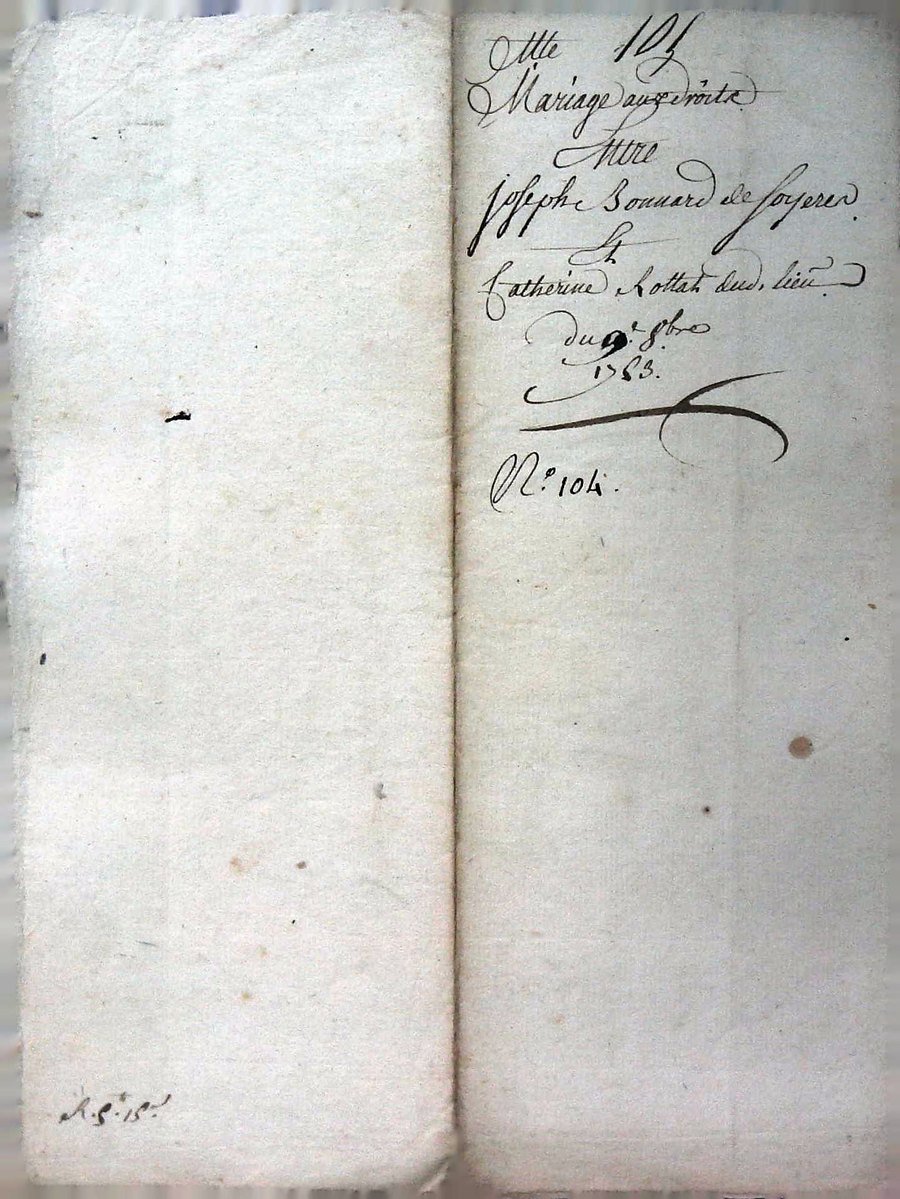 Mariage aux droits
Entre
Joseph Bonnard de Soyeres
Et
Catherine Rottat dud. lieu
du 9.e 8.bre
1753.
N.o 104.
R. 5.# 15.s